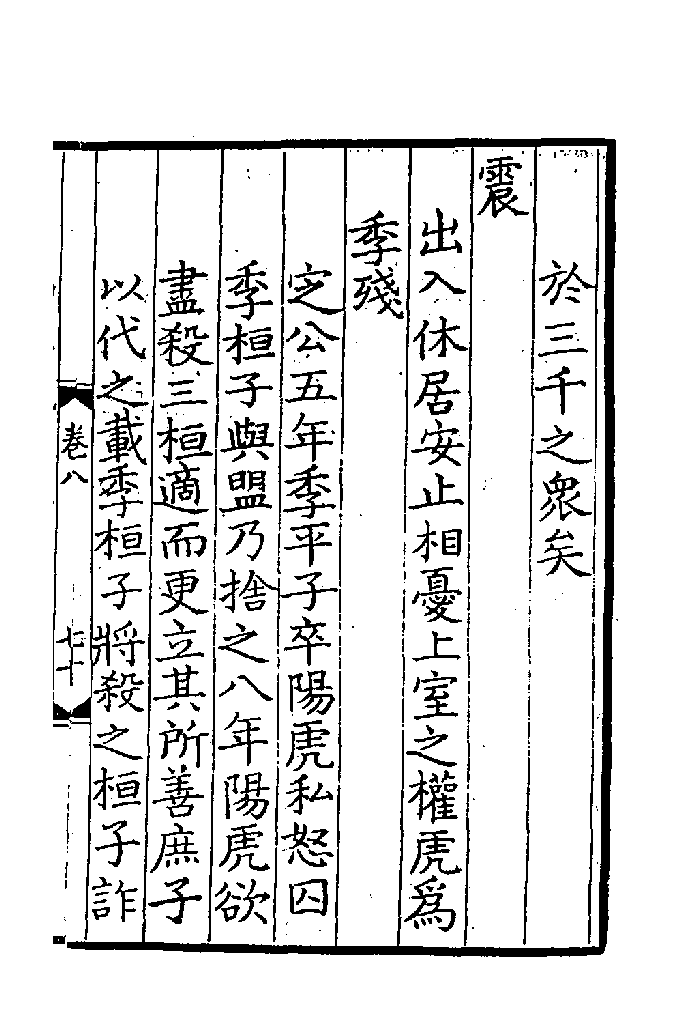 於三千之衆矣
震
出入休居安止相憂上室之權虎爲
季殘
定公五年季平子卒陽虎私怒囚
季桓子與盟乃捨之八年陽虎欲
盡殺三桓適而更立其所善庶子
以代之載季桓子將殺之桓子詐
卷八
七十